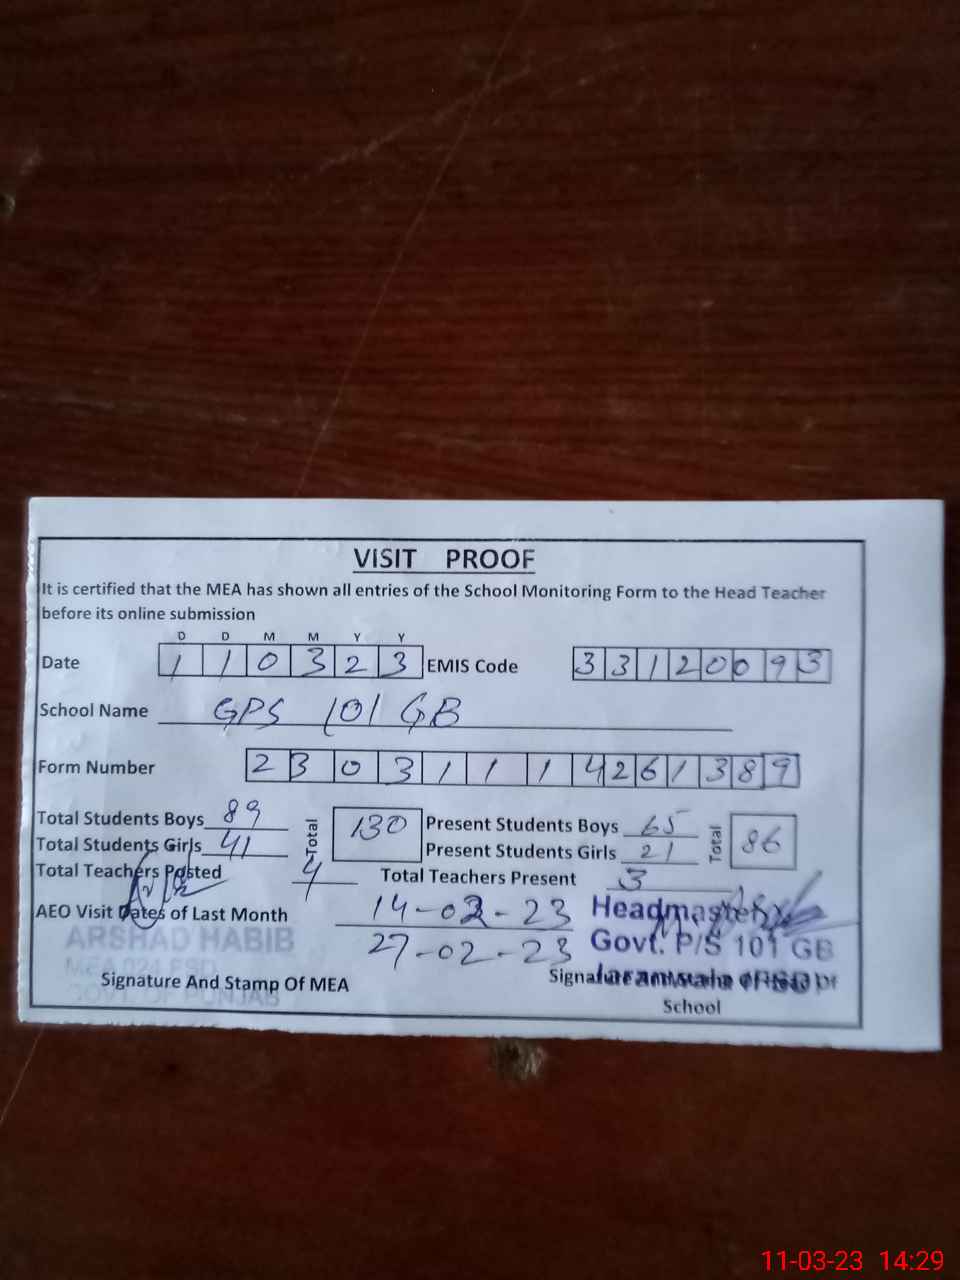 VISIT PROOF
It is certified that the MEA has shown all entries of the School Monitoring Form to the Head Teacher
before its online submission
D D M M Y Y
Date 1 1 0 3 2 3 EMIS Code 3 3 1 2 0 0 9 3
School Name GPS 101 GB
Form Number 2 3 0 3 1 1 1 4 2 6 1 3 8 9
Total Students Boys 89 Total 130 Present Students Boys 65 Total 86
Total Students Girls 41 Present Students Girls 21
Total Teachers Posted 4 Total Teachers Present 3
AEO Visit Dates of Last Month 14-02-23 Headmaster
ARSHAD HABIB 27-02-23 Govt. P/S 101 GB
MEA 024 FSD
Signature And Stamp Of MEA Signature Jaranwala (FSD)
GOVT. OF PUNJAB School
11-03-23 14:29